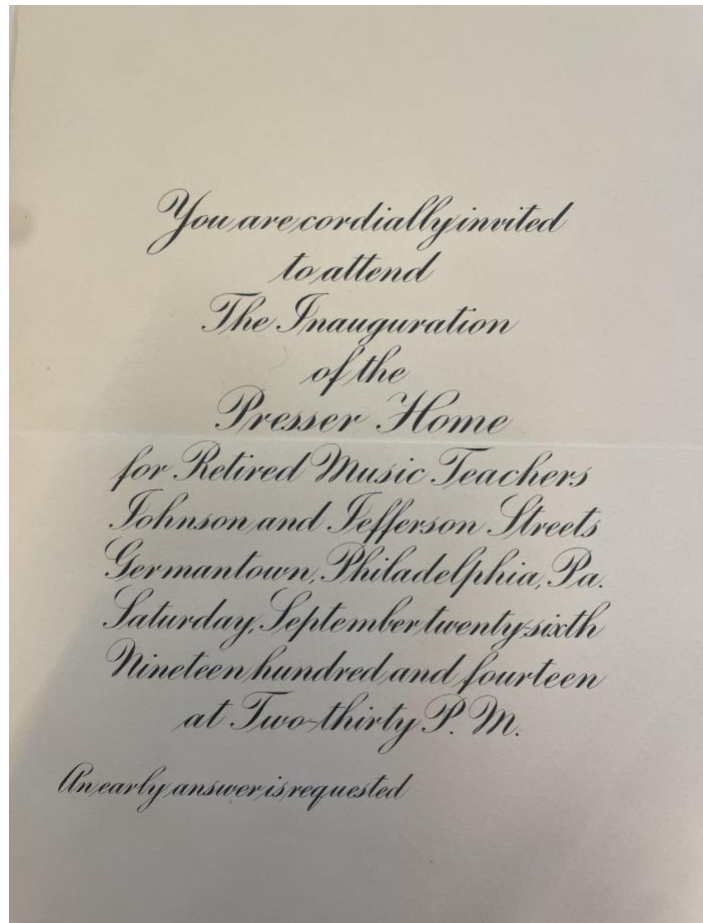 You are cordially invited
to attend
The Inauguration
of the
Presser Home
for Retired Music Teachers
Johnson and Jefferson Streets
Germantown, Philadelphia, Pa.
Saturday, September twenty-sixth
Nineteen hundred and fourteen
at Two-thirty P. M.
An early answer is requested